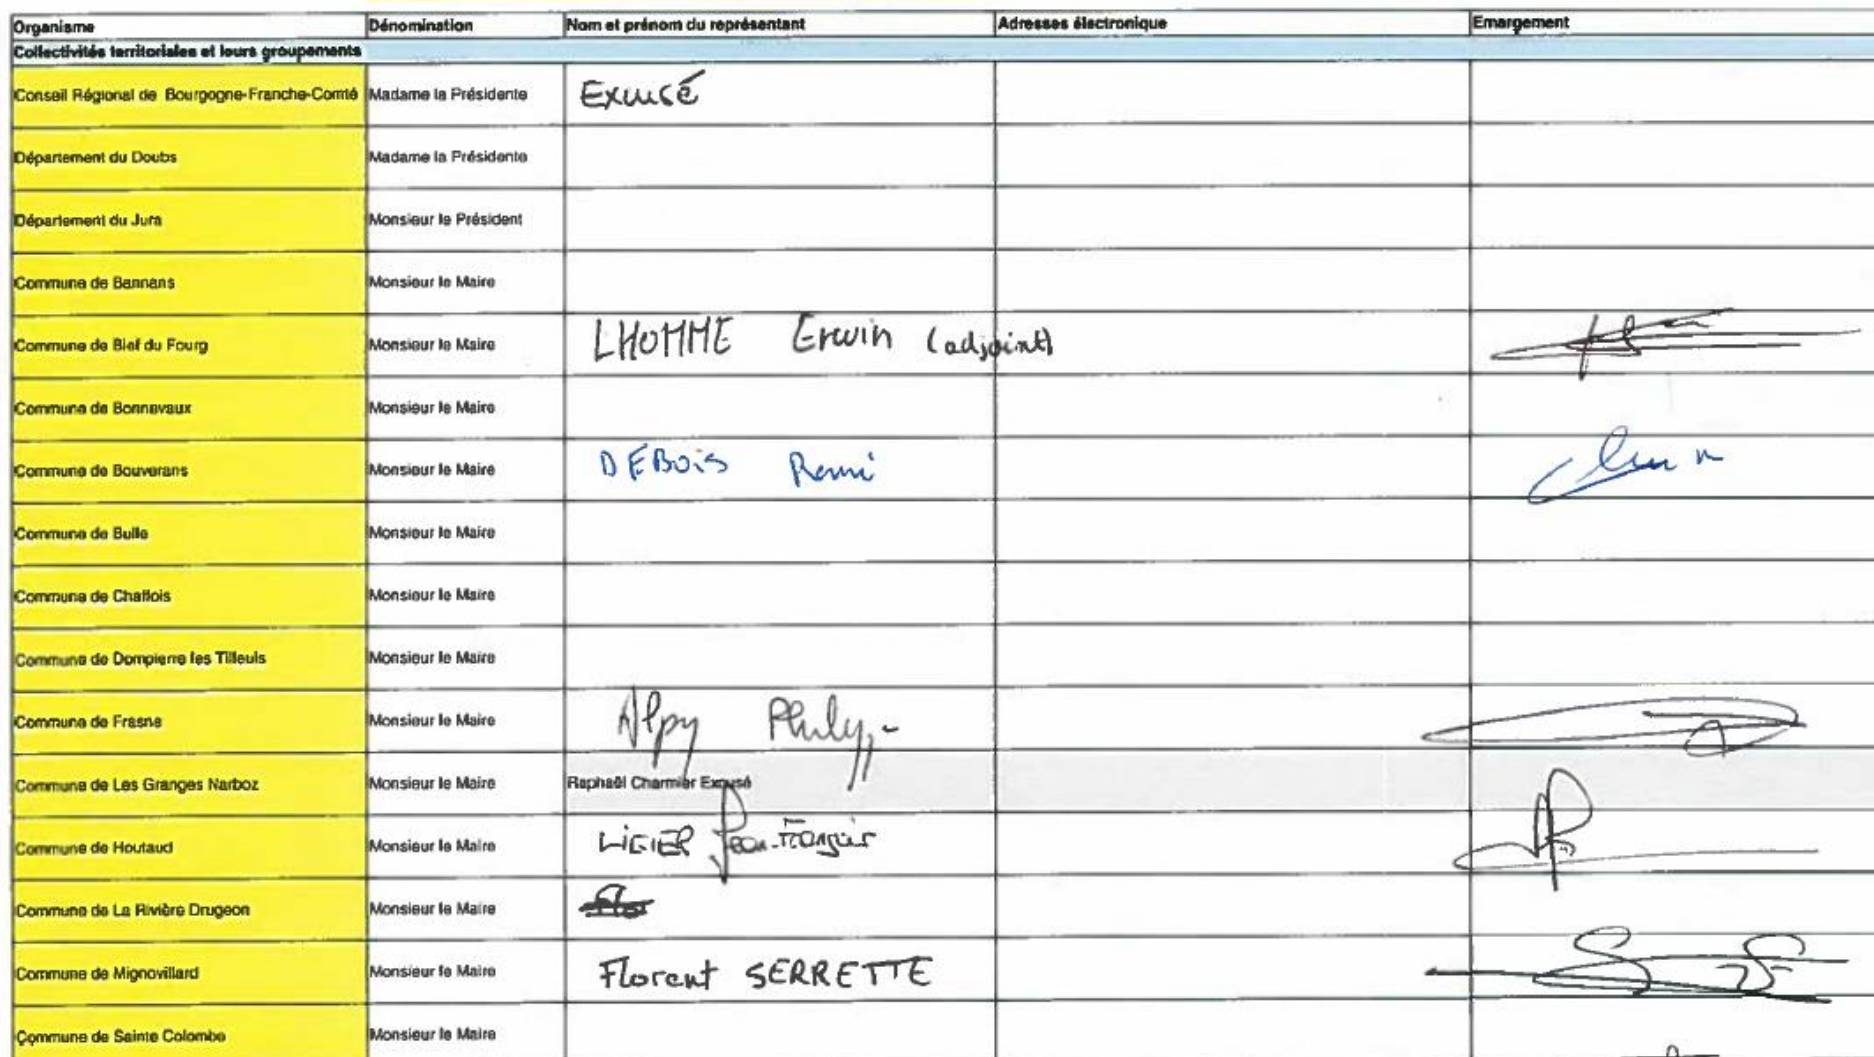 Organisme Dénomination Nom et prénom du représentant Adresses électronique Emargement
Collectivités territoriales et leurs groupements
Conseil Régional de Bourgogne-Franche-Comté Madame la Présidente Excusé
Département du Doubs Madame la Présidente
Département du Jura Monsieur le Président
Commune de Bannans Monsieur le Maire
Commune de Bief du Fourg Monsieur le Maire LHOMME Erwin (adjoint)
Commune de Bonnevaux Monsieur le Maire
Commune de Bouverans Monsieur le Maire DEBOIS Remi
Commune de Bulle Monsieur le Maire
Commune de Chaffois Monsieur le Maire
Commune de Dompierre les Tilleuls Monsieur le Maire
Commune de Frasne Monsieur le Maire Alpy
Commune de Les Granges Narboz Monsieur le Maire Raphaël Charmier Excusé
Commune de Houtaud Monsieur le Maire LIGIER Jean-François
Commune de La Rivière Drugeon Monsieur le Maire
Commune de Mignovillard Monsieur le Maire Florent SERRETTE
Commune de Sainte Colombe Monsieur le Maire